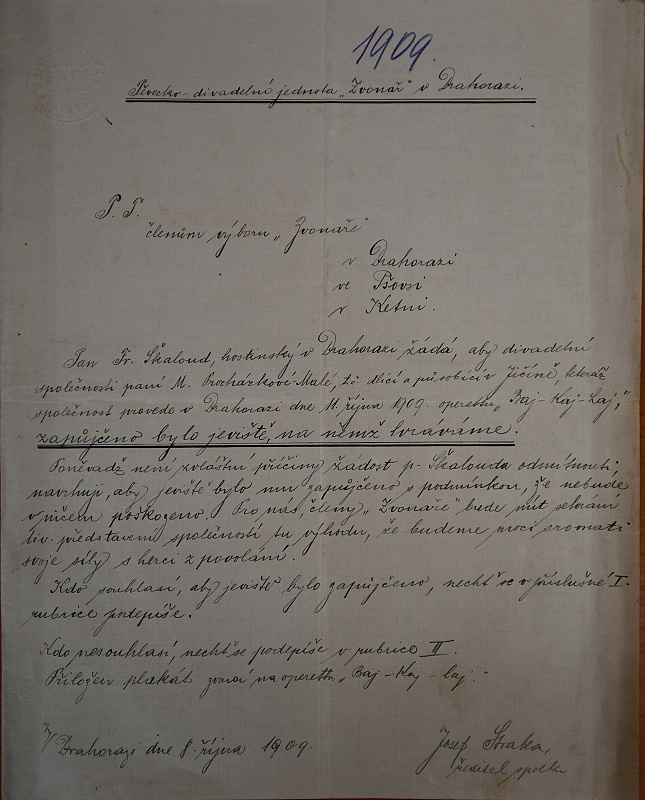 1909.
Pěvecko-divadelní jednota „Zvonař" v Drahorazi.
P. T.
členům výboru „Zvonaře"
v Drahorazi
ve Pšovsi
v Ketni.
Pan Fr. Škaloud, hostinský v Drahorazi žádá, aby divadelní
společnosti paní M. Procházkové-Malé, t.č. dlící a působící v Jičíně, kteráž
společnost provede v Drahorazi dne 11. října 1909. operettu „Baj-Kaj-Laj",
zapůjčeno bylo jeviště, na němž hráváme.
Poněvadž není zvláštní příčiny žádost p. Škalouda odmítnouti,
navrhuji, aby jeviště bylo mu zapůjčeno s podmínkou, že nebude
v ničem poškozeno. Pro nás, členy „Zvonaře" bude mít sehrání
div. představení společností tu výhodu, že budeme moci srovnati
svoje síly s herci z povolání.
Kdo souhlasí, aby jeviště bylo zapůjčeno, nechť se v příslušné I.
rubrice podepíše.
Kdo nesouhlasí, nechť se podepíše v rubrice II.
Přiložen plakát zvoucí na operettu „Baj-Kaj-laj."
V Drahorazi dne 8. října 1909.
Josef Straka,
ředitel spolku